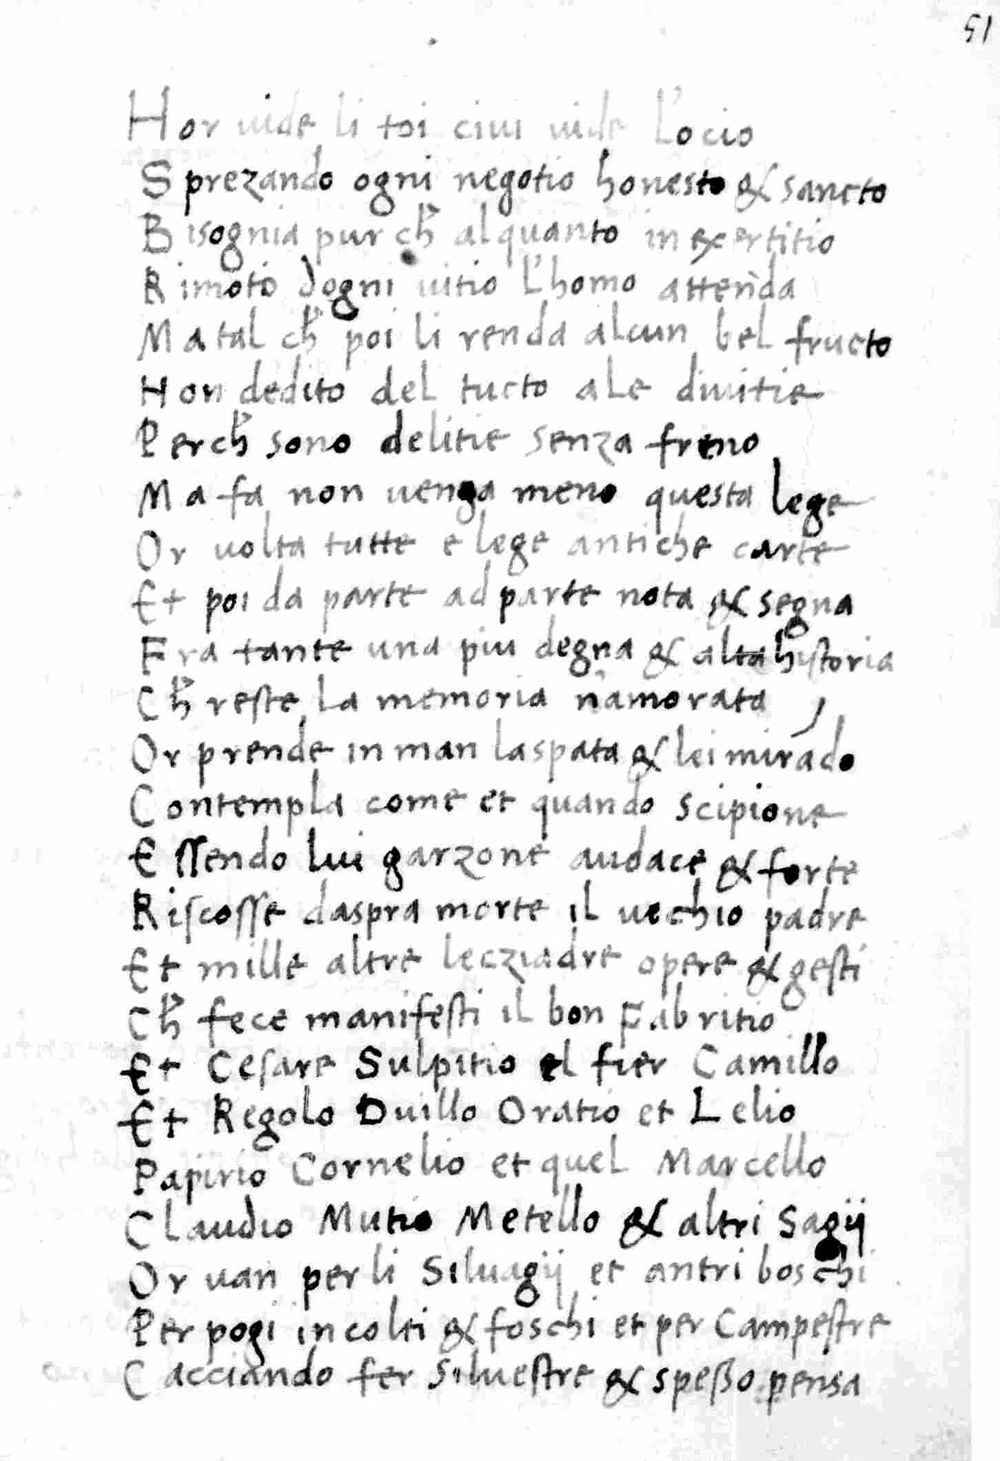 51
Hor uide li toi ciui uide L'ocio
Sprezando ogni negotio honesto & sancto
Bisognia pur ch̄ alquanto in exertitio
Rimoto dogni uitio L'homo attenda
Ma tal ch̄ poi li renda alcun bel fructo
Hon dedito del tucto a Le diuitie
Perch̄ sono delitie senza freno
Ma fa non uenga meno questa lege
Or uolta tutte e lege antiche carte
Et poi da parte ad parte nota & segna
Fra tante una piu degna & alta historia
Ch̄ reste La memoria n̄amorata
Or prende in man la spata & lei mirādo
Contempla come et quando Scipione
Essendo lui garzone audace & forte
Riscosse daspra morte il uechio padre
Et mille altre lecziadre opere & gesti
Ch̄ fece manifesti il bon Fabritio
Et Cesare Sulpitio el fier Camillo
Et Regolo Duillo Oratio et Lelio
Papirio Cornelio et quel Marcello
Claudio Mutio Metello & altri Sagij
Or uan per li Siluagij et antri boschi
Per pogi incolti & foschi et per Campestre
Cacciando fer siluestre & speßo pensa